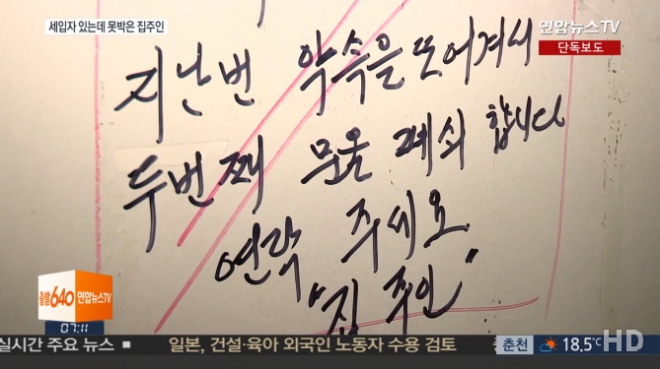 세입자 있는데 못박은 집주인
연합뉴스TV
단독보도
지난번 약속을 또어겨서
두번째 문을 폐쇠 합니다
연락 주세요
"집 주인"
640 연합뉴스TV
07:11
실시간 주요 뉴스
일본, 건설·육아 외국인 노동자 수용 검토
춘천 18.5℃
HD